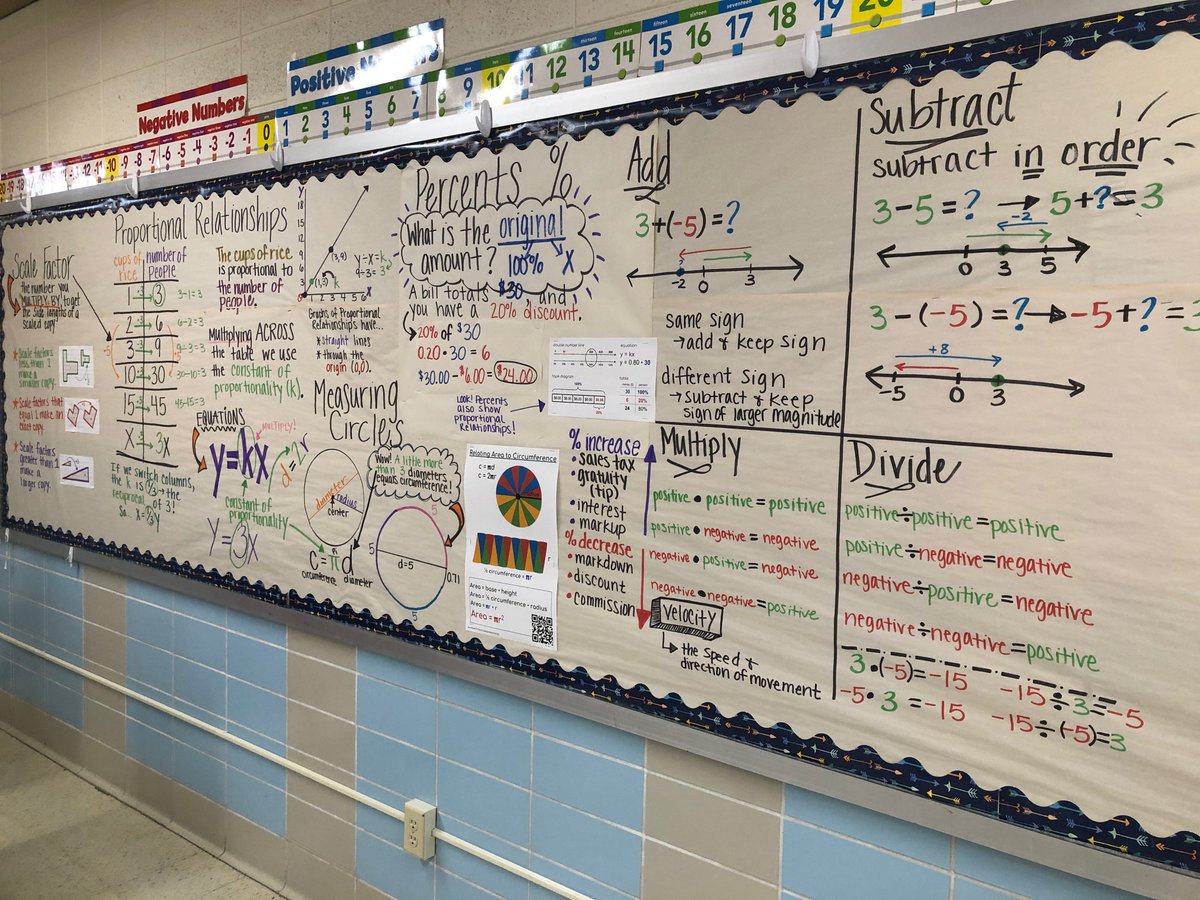 Negative Numbers
Positive Numbers
-10 -9 -8 -7 -6 -5 -4 -3 -2 -1 0 1 2 3 4 5 6 7 8 9 10 11 12 13 14 15 16 17 18 19 20
Scale Factor
the number you
MULTIPLY BY to get
the side lengths of a
scaled copy.
* Scale factors
less than 1
make a
smaller copy.
* Scale factors that
equal 1 make an
exact copy.
* Scale factors
greater than 1
make a
larger copy.
Proportional Relationships
cups of rice
number of people
1 → 3
3÷1=3
2 → 6
6÷2=3
3 → 9
9÷3=3
10 → 30
30÷10=3
15 → 45
45÷15=3
x → 3x
If we switch columns,
the k is 1/3 → the
reciprocal of 3!
So... x = 1/3y
The cups of rice
is proportional to
the number of
people.
Multiplying ACROSS
the table we use
the constant of
proportionality (k).
EQUATIONS
MULTIPLY!
y=kx
d=2r
constant of
proportionality
y=3x
C=πd
circumference
diameter
y
18
15
12
9
6
3
0 1 2 3 4 5 6 x
(3,9)
(1,3) k
y÷x=k
9÷3=3
Graphs of Proportional
Relationships have...
* straight lines
* through the
origin (0,0).
Measuring
Circles
diameter
radius
center
Wow! A little more
than 3 diameters
equals circumference!
5
5
d=5
5
0.71
Percents %
What is the original
amount? 100% x
A bill totals $30, and
you have a 20% discount.
20% of $30
0.20 • 30 = 6
$30.00 - $6.00 = $24.00
Look! Percents
also show
proportional
Relationships!
double number line
equation
y = kx
y = 0.80 • 30
tape diagram
100%
$6.00 $6.00 $6.00 $6.00 $6.00
20%
30 100%
6 20%
24 80%
Relating Area to Circumference
C = πd
C = 2πr
r
½ circumference = πr
Area = base • height
Area = ½ circumference • radius
Area = πr • r
Area = πr²
% increase
• sales tax
• gratuity
(tip)
• interest
• markup
% decrease
• markdown
• discount
• commission
Add
3+(-5)=?
-2 0 3
same sign
→ add & keep sign
different sign
→ subtract & keep
sign of larger magnitude
Subtract
subtract in order
3-5=? → 5+?=3
-2
0 3 5
3-(-5)=? → -5+?=3
+8
-5 0 3
Multiply
positive • positive = positive
positive • negative = negative
negative • positive = negative
negative • negative = positive
velocity
the speed &
direction of movement
Divide
positive÷positive=positive
positive÷negative=negative
negative÷positive=negative
negative÷negative=positive
3•(-5)=-15 -15÷3=-5
-5•3=-15 -15÷(-5)=3